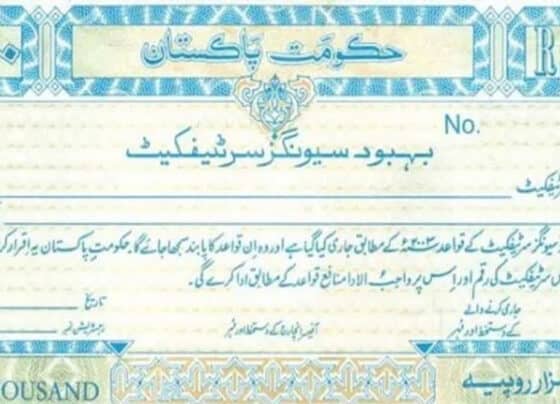 حکومت پاکستان
No.
بہبود سیونگز سرٹیفکیٹ
ٹیفکیٹ
سیونگز سرٹیفکیٹ کے قواعد ۲۰۰۳ء کے مطابق جاری کیا گیا ہے اور وہ ان قواعد کا پابند سمجھا جائے گا۔ حکومت پاکستان یہ اقرار کر
سرٹیفکیٹ کی رقم اور اس پر واجب الادا منافع قواعد کے مطابق ادا کرے گی۔
جاری کرنے والے
تاریخ
کے دستخط اور مہر
آفیسر انچارج کے دستخط اور مہر
رجسٹریشن نمبر
OUSAND
ہزار روپیہ